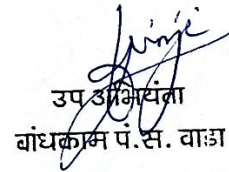 उप अभियंता
बांधकाम पं.स. वाडा